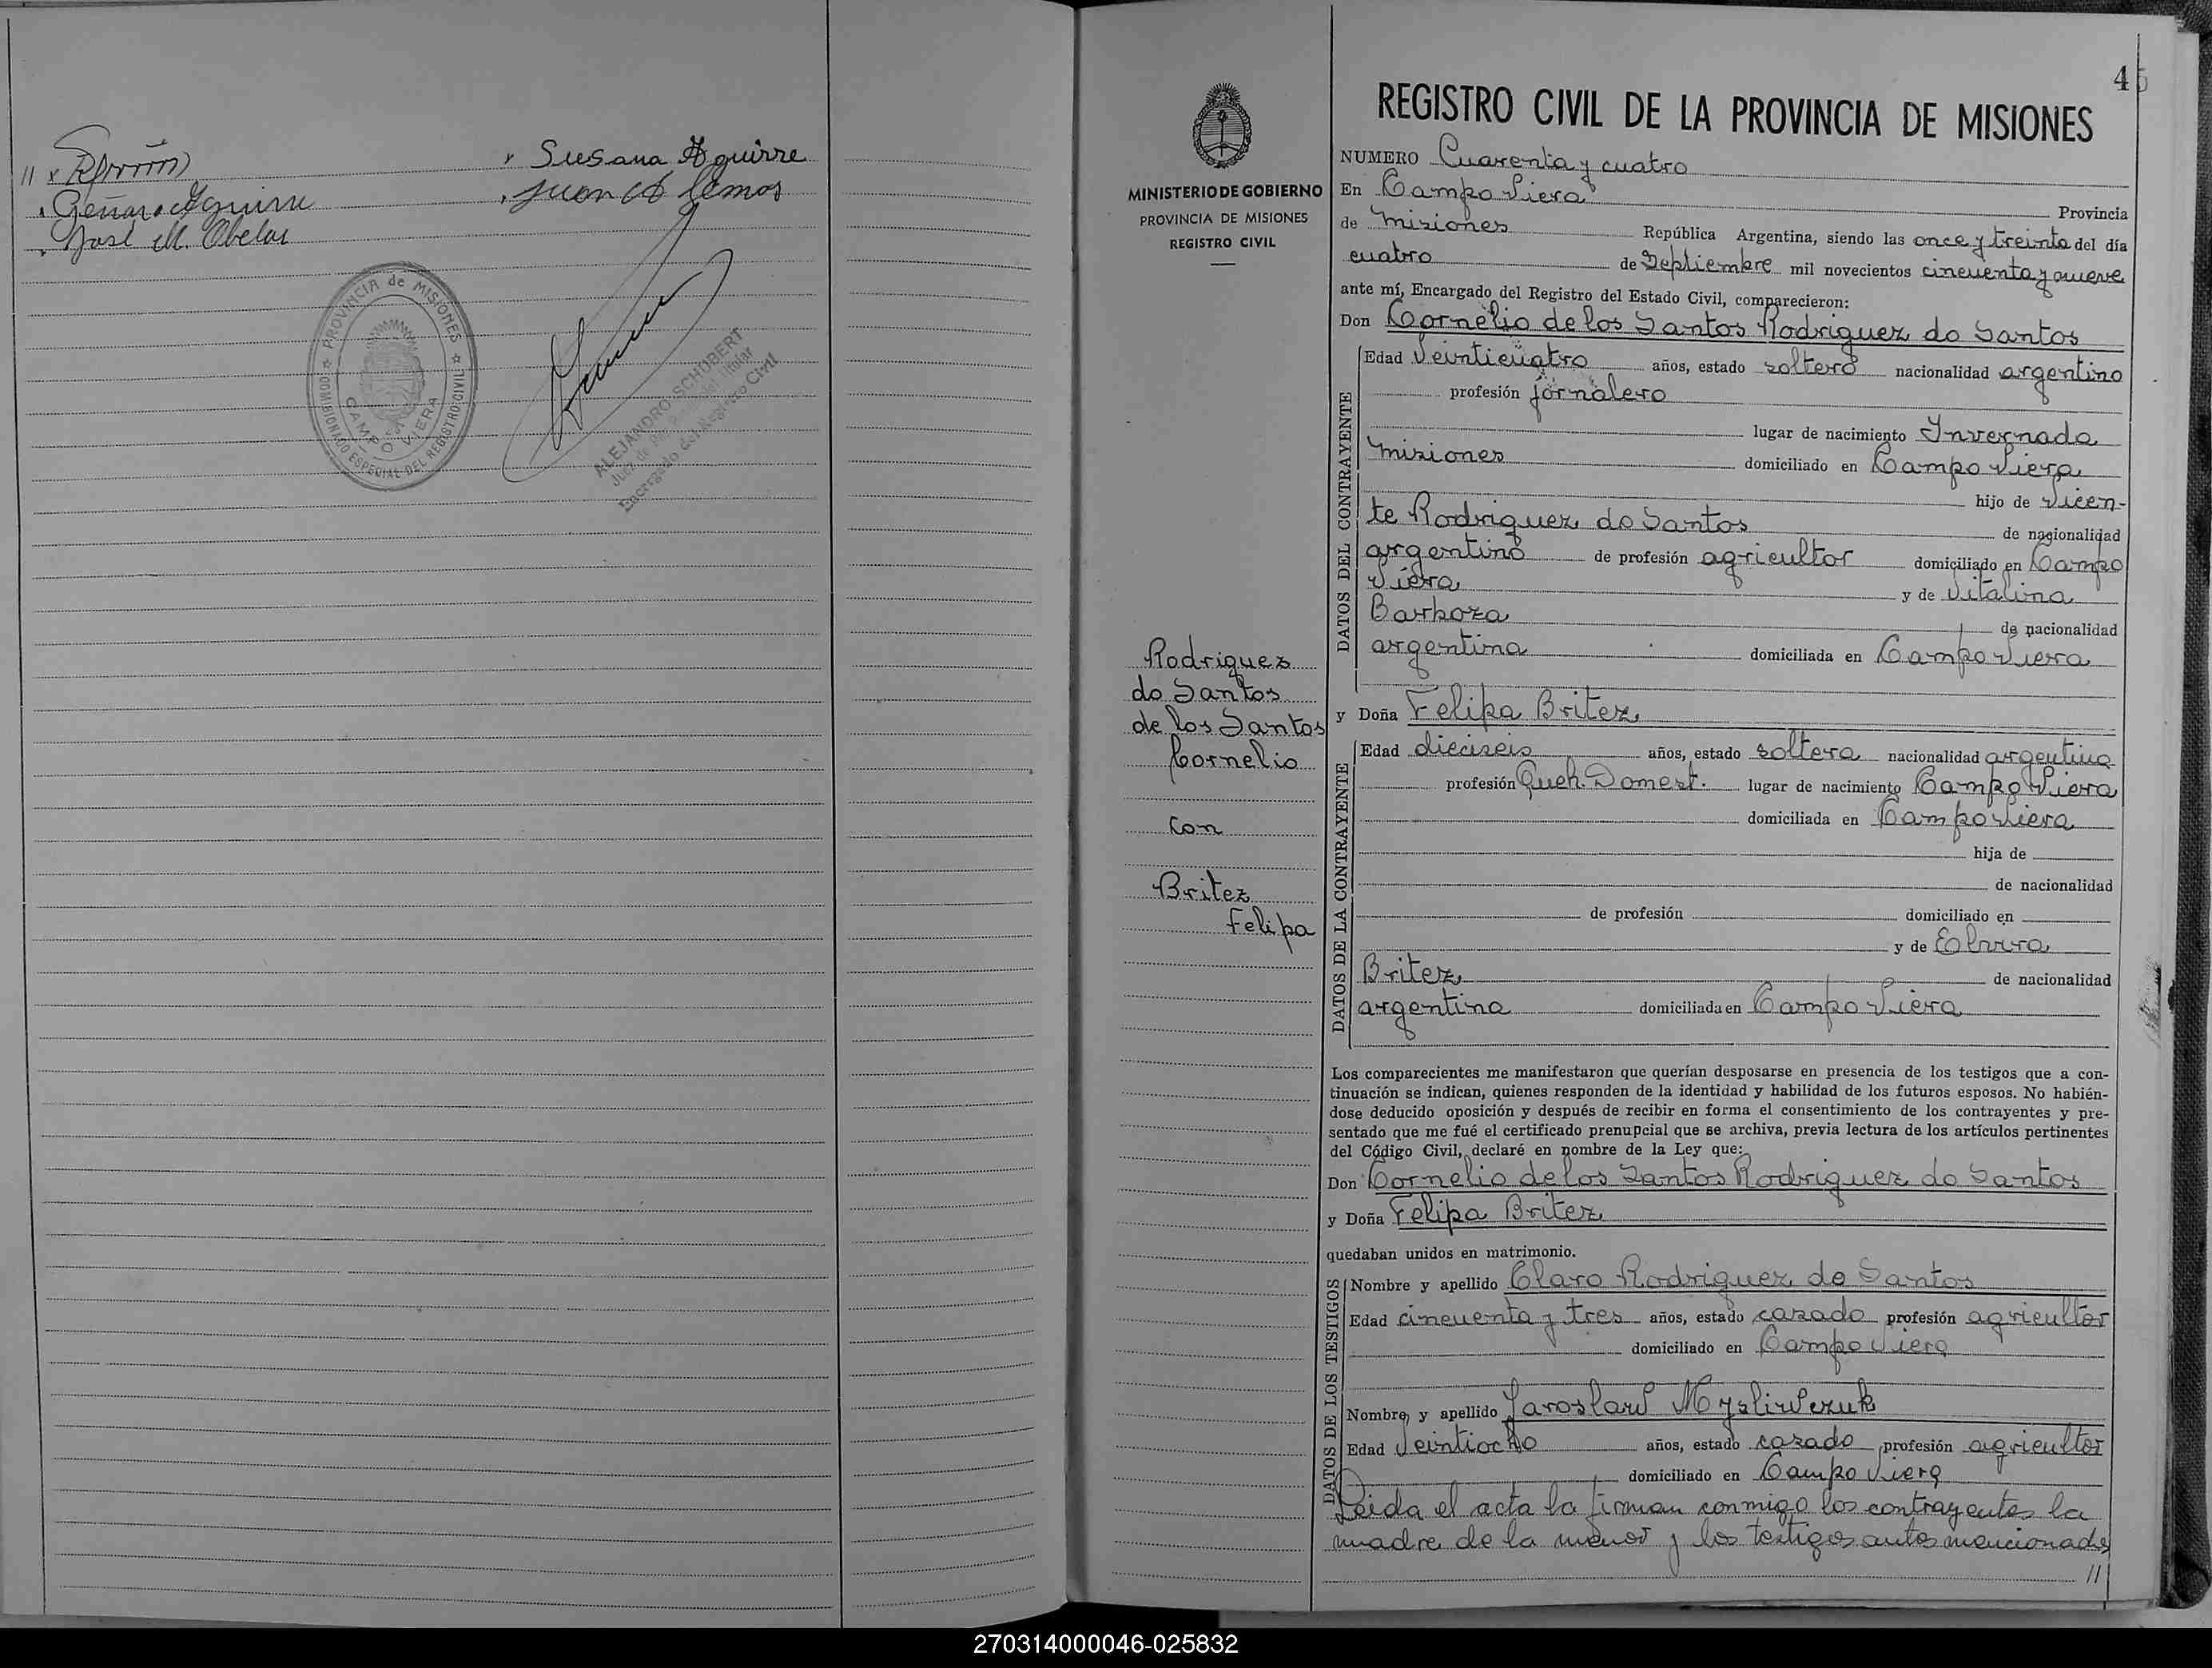 Susana Aguirre
Genaro Aguirre
Juan A Lemos
José M. Obelar
PROVINCIA de MISIONES
CAMPO VIERA
COMISIONADO ESPECIAL DEL REGISTRO CIVIL
ALEJANDRO SCHUBERT
Juez de Paz Titular
Encargado del Registro Civil
MINISTERIO DE GOBIERNO
PROVINCIA DE MISIONES
REGISTRO CIVIL
Rodriguez
do Santos
de los Santos
Cornelio
con
Britez
Felipa
45
REGISTRO CIVIL DE LA PROVINCIA DE MISIONES
NUMERO Cuarenta y cuatro
En Campo Viera Provincia
de Misiones República Argentina, siendo las once y treinta del día
cuatro de Septiembre mil novecientos cincuenta y nueve
ante mí, Encargado del Registro del Estado Civil, comparecieron:
Don Cornelio de los Santos Rodriguez do Santos
DATOS DEL CONTRAYENTE
Edad Veinticuatro años, estado soltero nacionalidad argentino
profesión jornalero
lugar de nacimiento Invernada
Misiones domiciliado en Campo Viera
hijo de Vicen-
te Rodriguez do Santos de nacionalidad
argentino de profesión agricultor domiciliado en Campo
Viera y de Vitalina
Barboza de nacionalidad
argentina domiciliada en Campo Viera
y Doña Felipa Britez
DATOS DE LA CONTRAYENTE
Edad dieciseis años, estado soltera nacionalidad argentina
profesión Queh. Domest. lugar de nacimiento Campo Viera
domiciliada en Campo Viera
hija de
de nacionalidad
de profesión domiciliado en
y de Elvira
Britez de nacionalidad
argentina domiciliada en Campo Viera
Los comparecientes me manifestaron que querían desposarse en presencia de los testigos que a con-
tinuación se indican, quienes responden de la identidad y habilidad de los futuros esposos. No habién-
dose deducido oposición y después de recibir en forma el consentimiento de los contrayentes y pre-
sentado que me fué el certificado prenupcial que se archiva, previa lectura de los artículos pertinentes
del Código Civil, declaré en nombre de la Ley que:
Don Cornelio de los Santos Rodriguez do Santos
y Doña Felipa Britez
quedaban unidos en matrimonio.
DATOS DE LOS TESTIGOS
Nombre y apellido Claro Rodriguez do Santos
Edad cincuenta y tres años, estado casado profesión agricultor
domiciliado en Campo Viera
Nombre y apellido Jaroslaw Mysliwczuk
Edad Veintiocho años, estado casado profesión agricultor
domiciliado en Campo Viera
Leida el acta la firman conmigo los contrayentes la
madre de la menor y los testigos antes mencionados
//
270314000046-025832